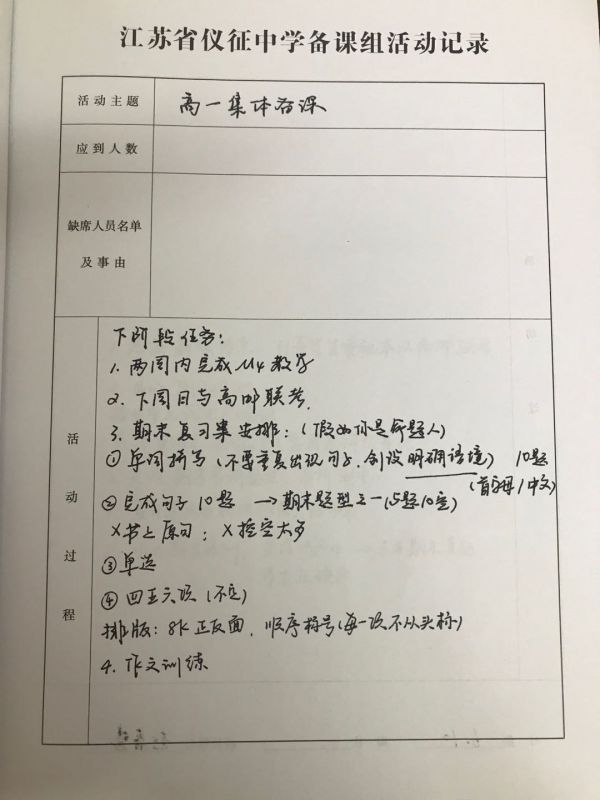 江苏省仪征中学备课组活动记录
活动主题
高一集体备课
应到人数
缺席人员名单
及事由
活动过程
下阶段任务：
1. 两周内完成M4教学
2. 下周日与高邮联考.
3. 期末复习案安排：（假如你是命题人）
① 单词拼写（不要重复出现句子，创设明确语境） 10题
（首字母/中文）
② 完成句子 10题 →期末题型之一（5题10空）
X书上原句； X挖空太多
③ 单选
④ 四五六次（不定）
排版：8K正反面，顺序标号（每一次不从头标）
4. 作文训练